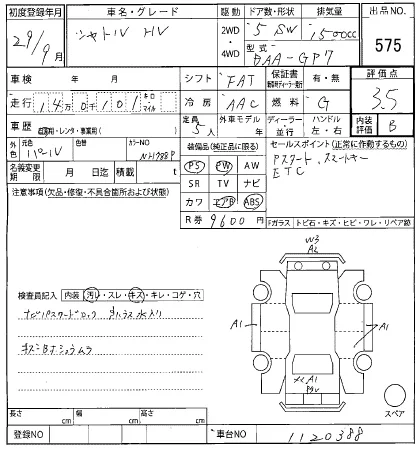 初度登録年月 車名・グレード 駆動 ドア数・形状 排気量 出品NO
29/9月 シャトル HV 2WD・4WD 5 SW 1500cc 575
型式 DAA-GP7
車検 年 月 シフト FAT 保証書 有・無 評価点
走行 14万0千101キロ・マイル 冷房 AAC 燃料 G 3.5
車歴 自家用・レンタ・事業用( ) 定員 5人 外車モデル 年 ディーラー・並行 ハンドル 左・右 内装評価 B
外色 元色 色替 カラーNO NH788P
装備品(純正品に限る) セールスポイント(正常に作動するもの)
名義変更期限 月 日迄 積載 t
PS PW AW Pスタート、スマートキー
SR TV ナビ ETC
注意事項(欠品・修復・不具合箇所および状態)
カワ エアB ABS
R券 9600円 Fガラス トビ石・キズ・ヒビ・ワレ・リペア跡
W3
A2
検査員記入 内装 汚レ・スレ・キズ・キレ・コゲ・穴
ナビパスワードロック
A1
A1
A1
長さ cm 幅 cm 高さ cm
スペア
登録NO 車台NO 1120388